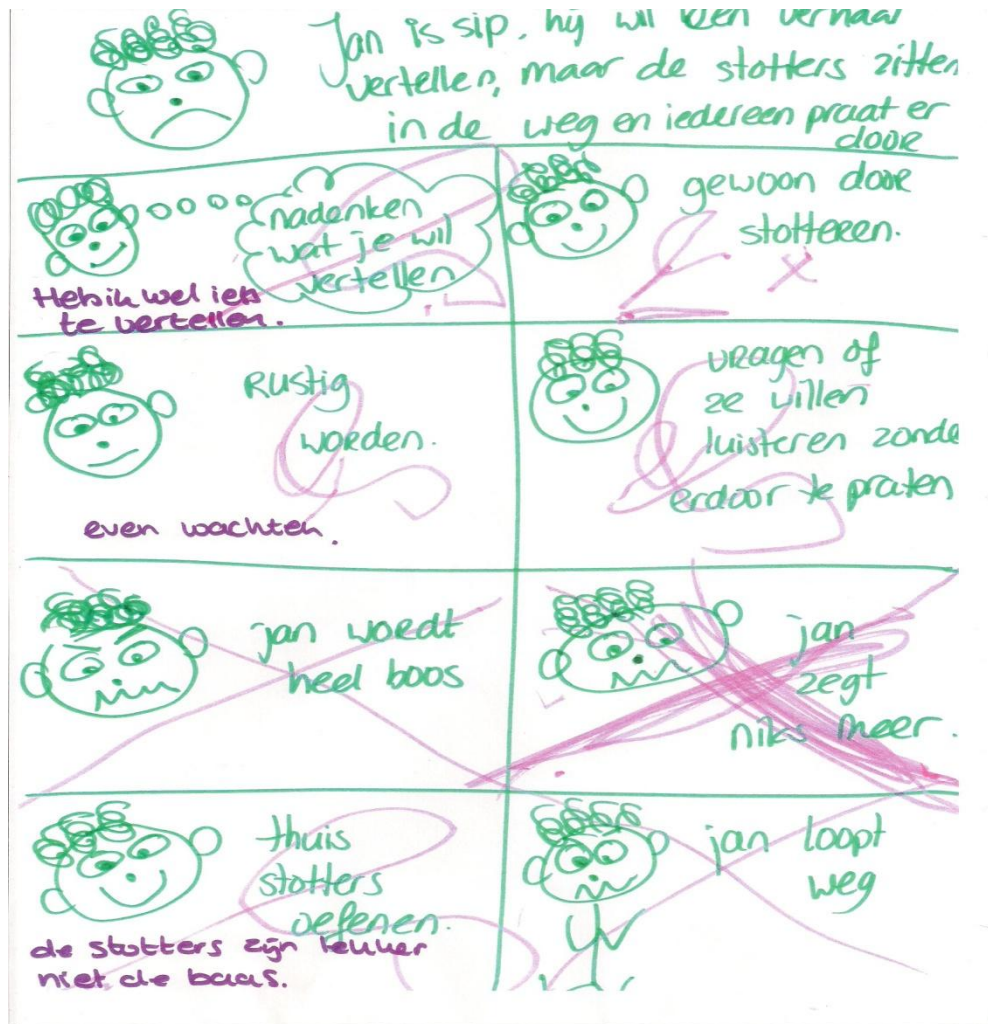 Jan is sip, hij wil een verhaal
vertellen, maar de stotters zitten
in de weg en iedereen praat er
door
nadenken
wat je wil
vertellen
Heb ik wel iets
te vertellen.
gewoon door
stotteren.
Rustig
worden.
even wachten.
vragen of
ze willen
luisteren zonde
erdoor te praten
jan wordt
heel boos
jan
zegt
niks meer.
thuis
stotters
oefenen.
de stotters zijn lekker
niet de baas.
jan loopt
weg